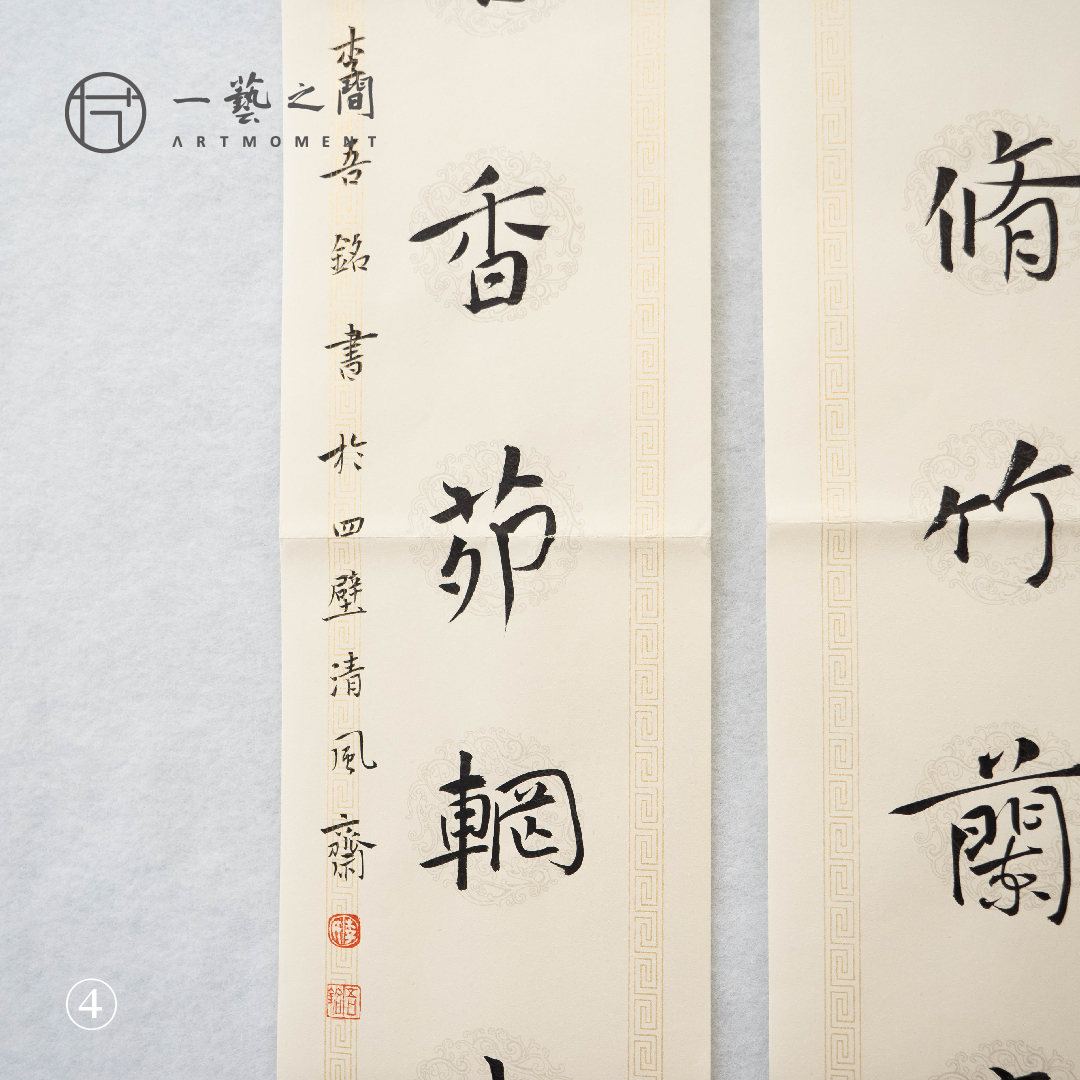 一藝之間
ARTMOMENT
脩竹蘭
香茆輞
李吾銘書於四壁清風齋
吾銘
④